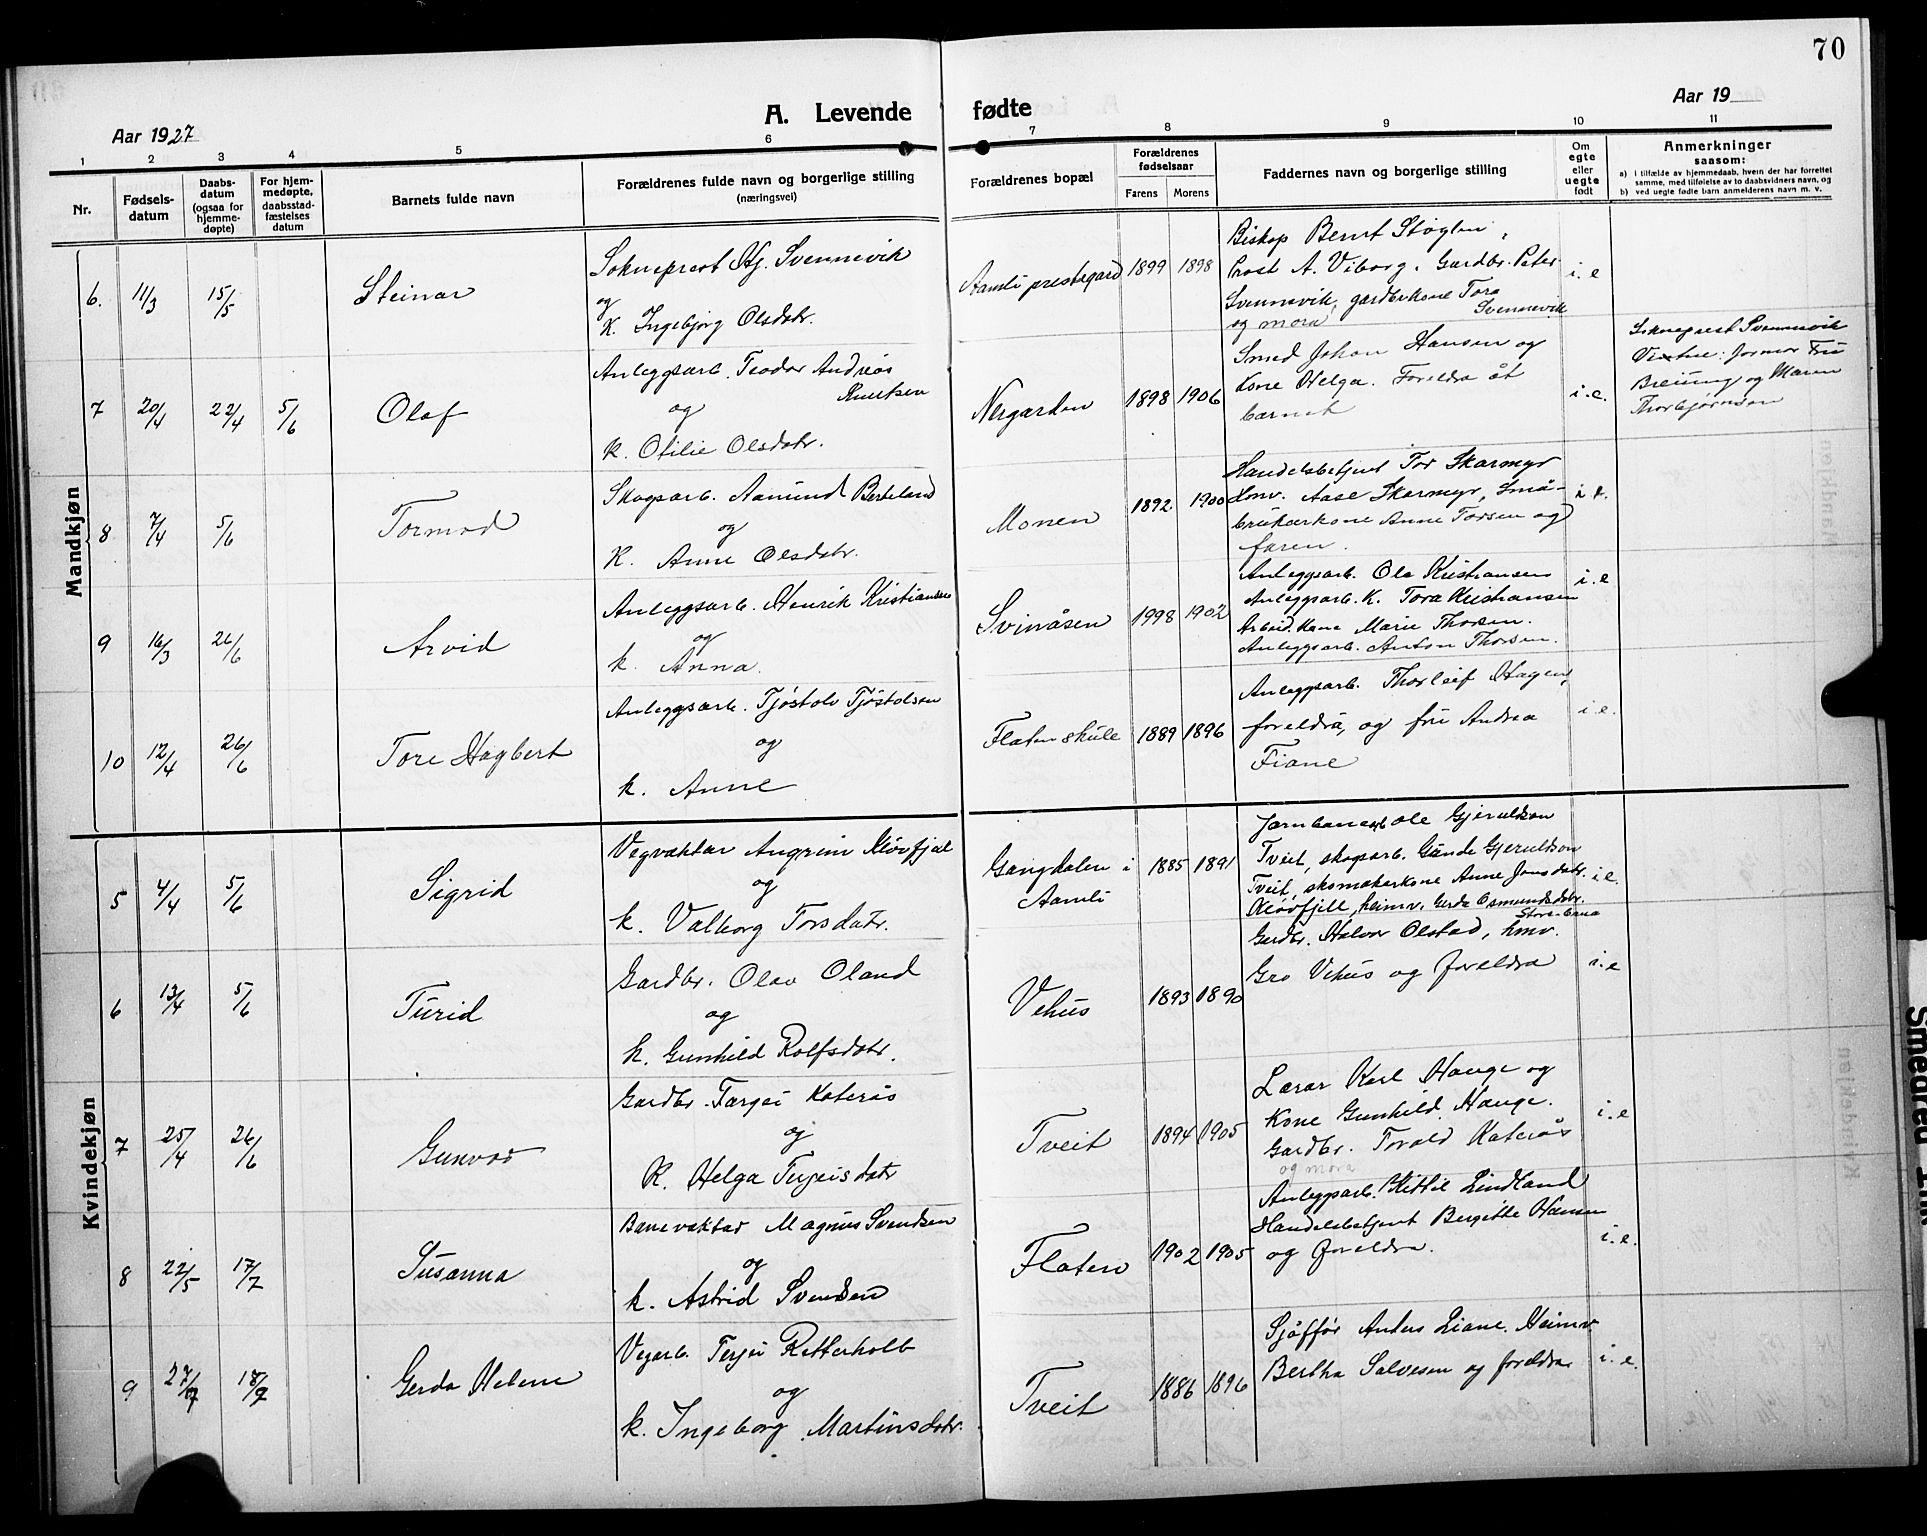 70
A. Levende fødte
Aar 1927
Aar 19
1 2 3 4 5 6 7 8 9 10 11
Nr.
Fødsels-
datum
Daabs-
datum
(ogsaa for
hjemme-
døpte)
For hjem-
medøpte,
daabsstad-
fæstelses
datum
Barnets fulde navn
Forældrenes fulde navn og borgerlige stilling
(næringsvei)
Forældrenes bopæl
Forældrenes
fødselsaar
Farens Morens
Faddernes navn og borgerlige stilling
Om
egte
eller
uegte
født
Anmerkninger
saasom:
a) i tilfælde av hjemmedaab, hvem der har forrettet
samme, med tilføielse av to daabsvidners navn, og
b) ved uegte fødte barn anmelderens navn m. v.
Mandkjøn
6. 11/3 15/5
Steinar
Sokneprest Hj. Svennevik
og
K. Ingebjørg Olsdotr.
Aamli prestegard 1899 1898
Biskop Bernt Støylen,
Prost A. Viborg. Gardbr. Peter
Svennevik, gardbrkone Tora
Svennevik
og mora
i. e
7 20/4 22/4 5/6
Olaf
Anleggsarb. Teodor Andreas
Knutsen
og
k. Otilie Olsdotr.
Nergarden 1898 1906
Smed Johan Hansen og
Kone Helga. Foreldra åt
barnet
i. e.
Sokneprest Svennevik
Vitne: formor Fru
Breiung og Maren
Thorbjørnsen
8 7/4 5/6
Tormod
Skogsarb. Aamund Berteland
og
K. Anne Olsdotr.
Monen 1892 1900
Handelsbetjent Tor Skarmyr
Hmv. Aase Skarmyr, Små-
brukarkone Anne Torsen og
faren.
i e.
9 16/3 26/6
Arvid
Anleggsarb. Henrik Kristiansen
og
k. Anna.
Svinåsen 1998 1902
Anleggsarb. Ole Kristiansen
Anleggsarb. K. Tora Kristiansen
Arbeid. Kone Marie Thorsen.
Anleggsarb. Anton Thorsen.
i. e
10 12/4 26/6
Tore Hagbert
Anleggsarb. Tjøstolv Tjøstolsen
og
k. Anne
Flaten skule 1889 1896
Anleggsarb. Thorleif Hagen,
foreldra, og fru Andrea
Fiane
i. e.
Kvindekjøn
5 4/4 5/6
Sigrid
Vegvaktar Angrim Kløvfjell
og
k. Valborg Torsdatr.
Gangdalen i
Aamli
1885 1891
Jarnbanearb Ole Gjerulson
Tveit, skogsarb. Gunde Gjerulson
Tveit, skomakerkone Anne Jonsdatr.
Kløvfjell, heimv. Gerda Osmundsdotr.
i. e.
6 13/4 5/6
Turid
Gardbr. Olav Oland
og
k. Gunhild Rolfsdotr.
Vehus 1893 1890
Gardbr. Halvor Olstad, hmv.
Gro Vehus og foreldra
i. e
7 25/4 26/6
Gunvor
Gardbr. Tarjei Katerås
og
K. Helga Terjeisdotr
Tveit 1894 1905
Lærar Karl Hauge og
Kone Gunhild Hauge.
Gardbr. Torald Katerås
og mora
i. e
8 22/5 17/7
Susanna
Banevaktar Magnus Svendsen
og
k. Astrid Svendsen
Flaten 1902 1905
Anleggsarb. Kittil Lindland
Handelsbetjent Bergitte Hansen
og foreldra.
i. e.
9 27/7 18/9
Gerda Helene
Vegarb. Terjei Retterholt
og
k. Ingeborg Martinsdotr.
Tveit 1886 1896
Sjåffør Anders Liane. Heimv.
Bertha Salvesen og foreldra
i. e.